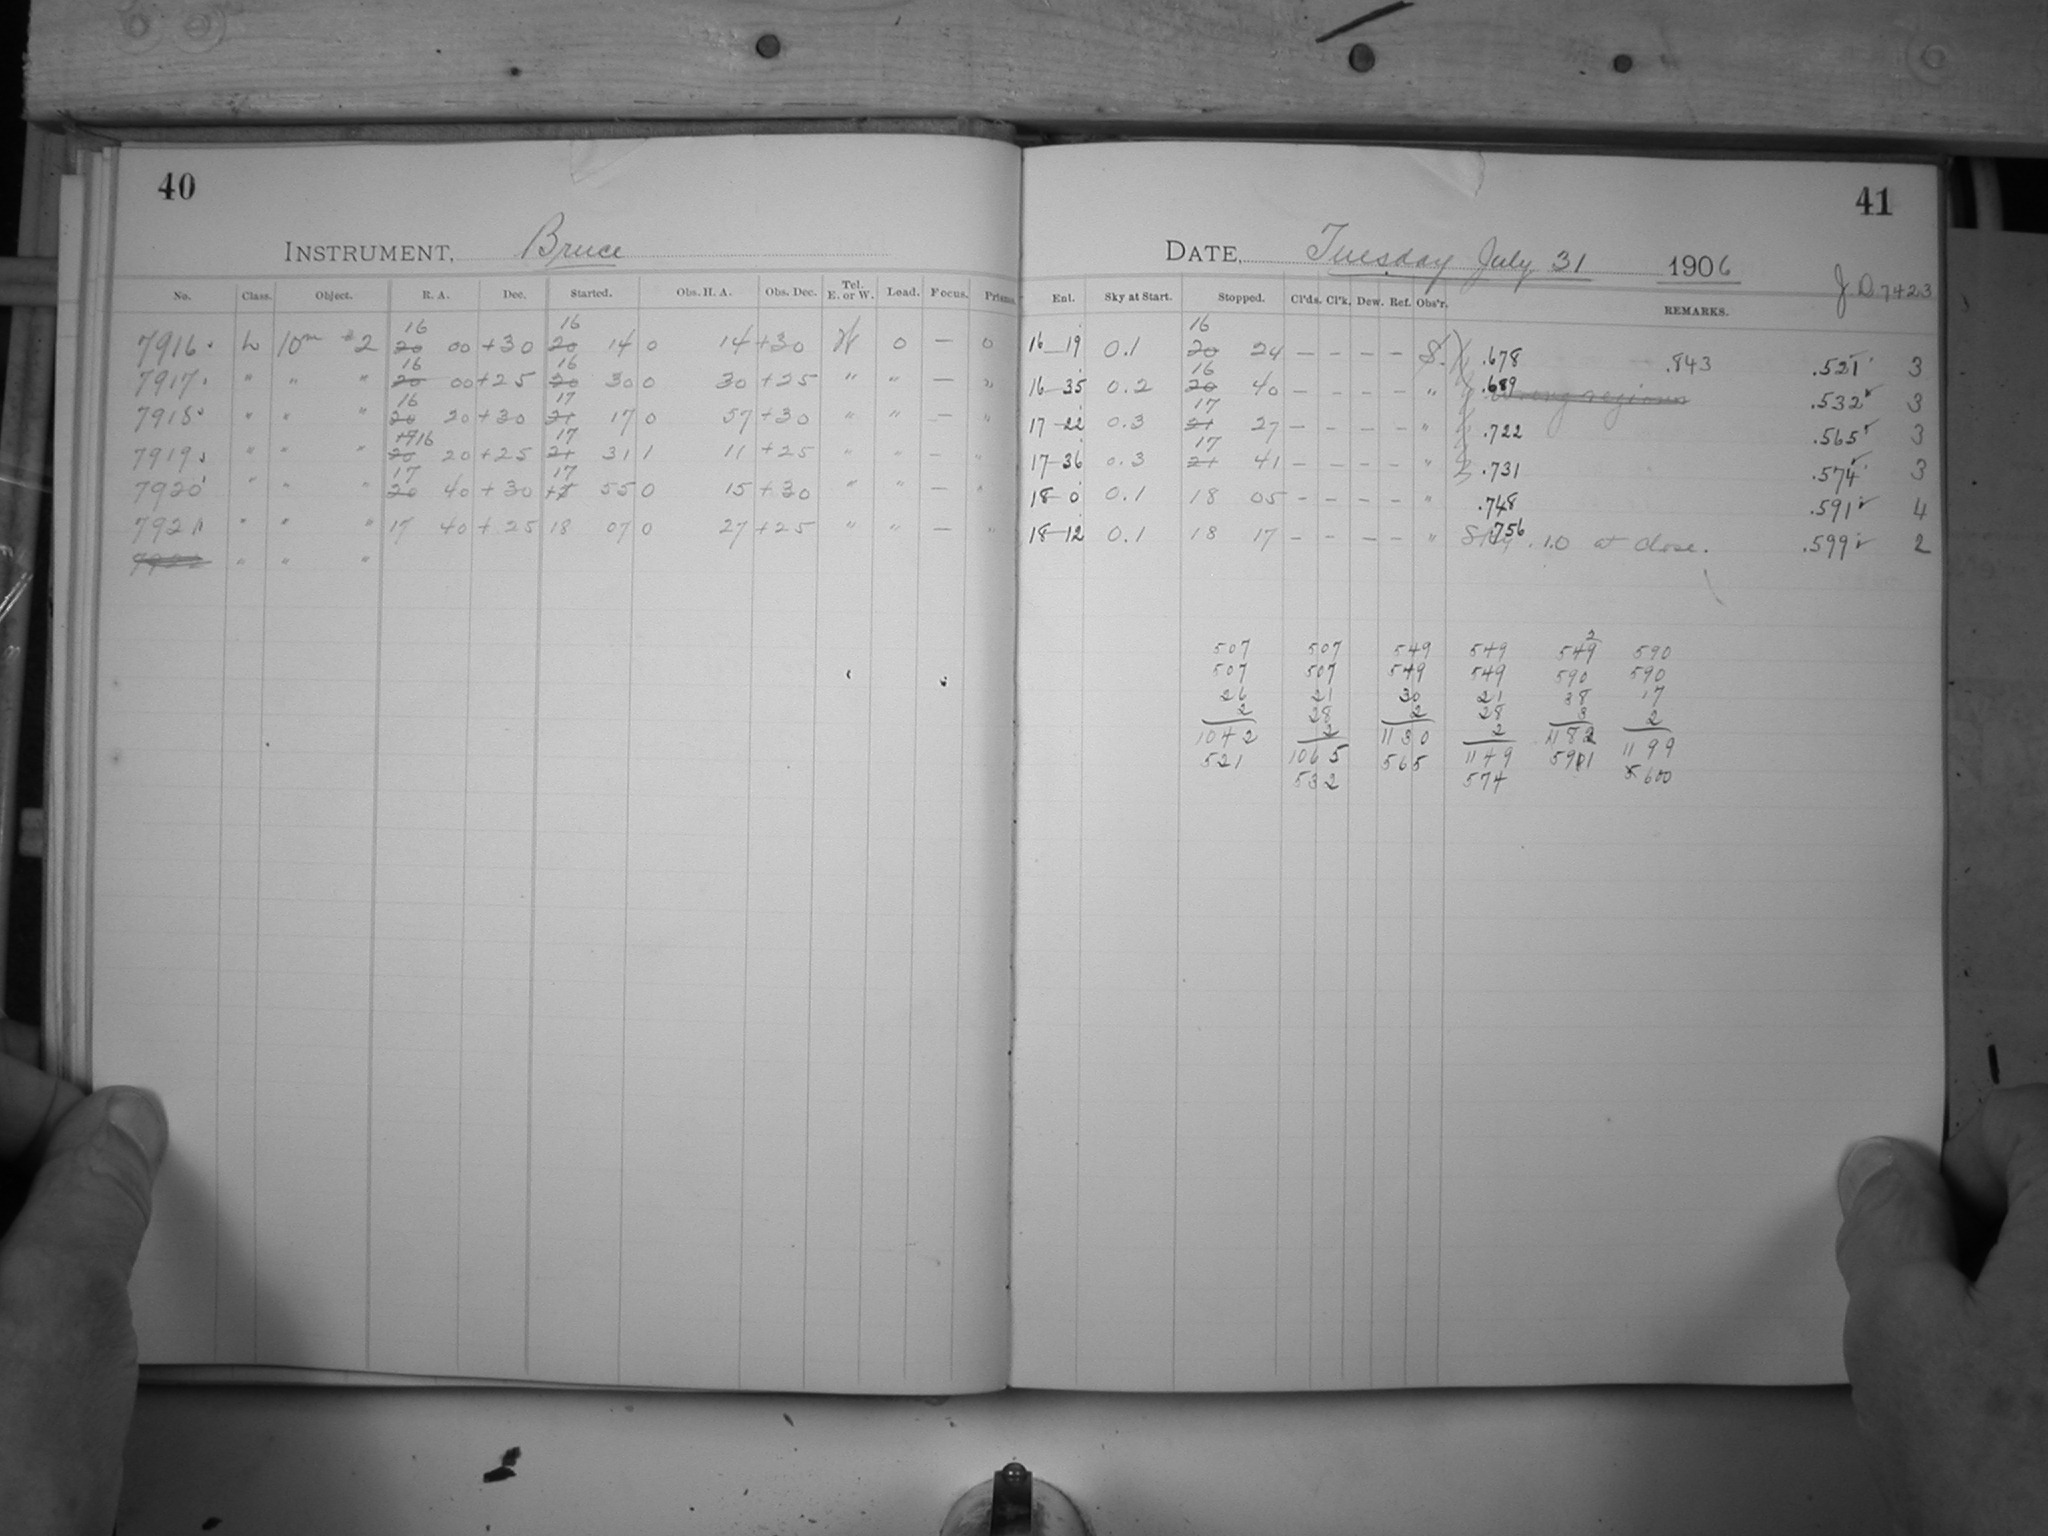 40
INSTRUMENT, Bruce
No. Class. Object. R. A. Dec. Started. Obs. H. A. Obs. Dec. Tel. E. or W. Load. Focus. Prisms.
16 16
7916 L 10m 2 20 00 +30 20 14 0 14 +30 W 0 — 0
16 16
7917 " " " 20 00 +25 20 30 0 30 +25 " " — "
16 17
7918 " " " 20 20 +30 21 17 0 57 +30 " " — "
16 17
7919 " " " 20 20 +25 21 31 1 11 +25 " " — "
17 17
7920 " " " 20 40 +30 55 0 15 +30 " " — "
7921 " " " 17 40 +25 18 07 0 27 +25 " " — "
7922 " " "
41
DATE, Tuesday July 31 1906
J. D. 7423
Enl. Sky at Start. Stopped. Cl'ds. Cl'k. Dew. Ref. Obs'r. REMARKS.
16
16—19 0.1 20 24 — — — — S. .678 .843 .521 3
16
16—35 0.2 20 40 — — — — " .689 Wrong regions .532 3
17
17—22 0.3 21 27 — — — — " .722 .565 3
17
17—36 0.3 21 41 — — — — " .731 .574 3
18—0 0.1 18 05 — — — — " .748 .591 4
18—12 0.1 18 17 — — — — " .756 Sky 1.0 at close. .599 2
2
507 507 549 549 549 590
507 507 549 549 590 590
26 21 30 21 38 17
2 28 2 28 3 2
1042 2 1130 2 1182 1199
521 1065 565 1149 591 600
532 574